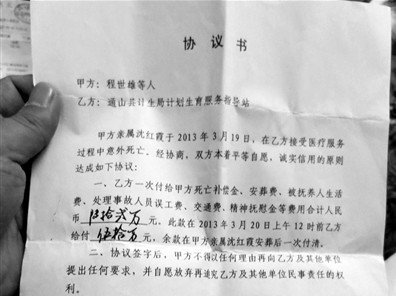 协议书
甲方：程世雄等人
乙方：通山县计生局计划生育服务指导站
甲方亲属沈红霞于2013年3月19日，在乙方接受医疗服务
过程中意外死亡、经协商，双方本着平等自愿，诚实信用的原则
达成如下协议：
一、乙方一次付给甲方死亡补偿金、安葬费、被抚养人生活
费、处理事故人员误工费、交通费、精神抚慰金等费用合计人民
币 拾贰万 元。此款在2013年3月20日上午12时前乙方
给付 伍拾万 元，余款在甲方亲属沈红霞安葬后一次付清。
二、协议签字后，甲方不得以任何理由再向乙方及其他单位
提出任何要求，并自愿放弃再追究乙方及其他单位民事责任的权
利。